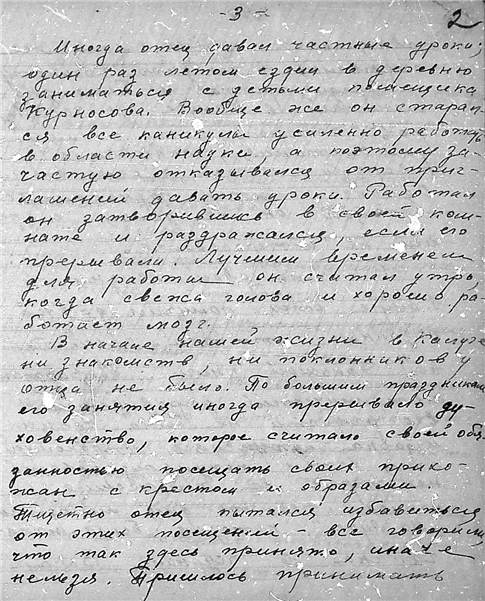 - 3 -
2
Иногда отец давал частные уроки;
один раз летом ездил в деревню
заниматься с детьми помещика
Курносова. Вообще же он старал-
ся все каникулы усиленно работать
в области науки, а поэтому за-
частую отказывался от приг-
лашений давать уроки. Работал
он затворившись в своей ком-
нате и раздражался, если его
прерывали. Лучшим временем
для работы он считал утро,
когда свежа голова и хорошо ра-
ботает мозг.
В начале нашей жизни в Калуге
ни знакомств, ни поклонников у
отца не было. По большим праздникам
его занятия иногда прерывало ду-
ховенство, которое считало своей обя-
занностью посещать своих прихо-
жан с крестом и образами.
Тщетно отец пытался избавиться
от этих посещений - все говорили,
что так здесь принято, иначе
нельзя. Пришлось принимать